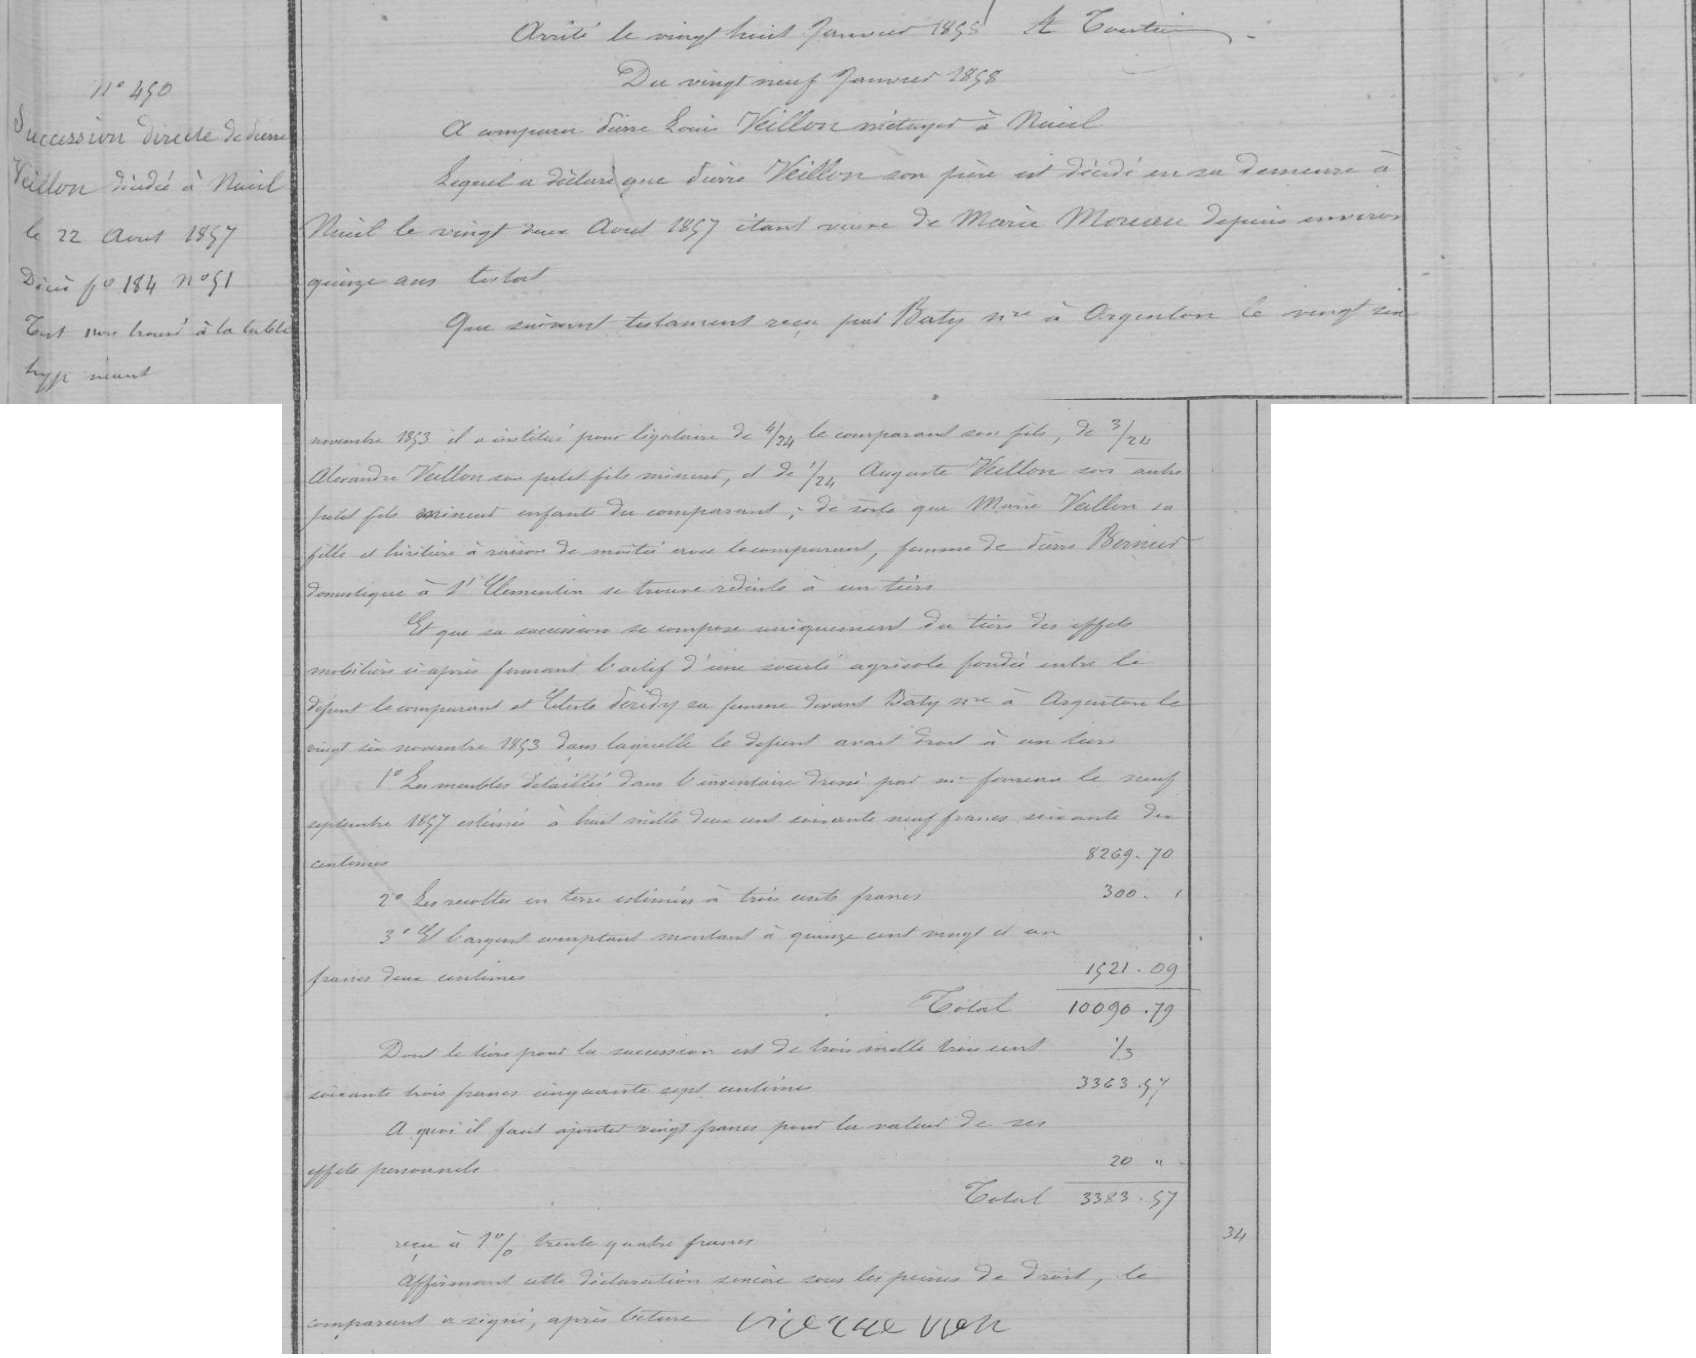 Arrêté le vingt huit Janvier 1858 A Tourtin
Du vingt neuf Janvier 1858
n° 450
Succession directe de Pierre
Veillon décédé à Nueil
le 22 Aout 1857
Décès f° 184 n° 51
Test non trouvé à la table
hyp néant
A comparu Pierre Louis Veillon métayer à Nueil
Lequel a déclaré que Pierre Veillon son père est décédé en sa demeure à
Nueil le vingt deux Aout 1857 étant veuve de Marie Moreau depuis environ
quinze ans testat
Que suivant testament reçu par Baty nre à Argenton le vingt six
novembre 1853 il a institué pour légataire de 4/24 le comparant son fils, de 3/24
Alexandre Veillon son petit fils mineur, et de 1/24 Auguste Veillon son autre
petit fils mineur enfants du comparant ; de sorte que Marie Veillon sa
fille et héritière à raison de moitié avec le comparant, femme de Pierre Bernier
domestique à St Clementin se trouve réduite à un tiers
Et que sa succession se compose uniquement du tiers des effets
mobiliers ci-après formant l'actif d'une société agricole fondée entre le
défunt le comparant et Céleste Péridy sa femme devant Baty nre à Argenton le
vingt six novembre 1853 dans laquelle le defunt avait droit à un tiers
1° Les meubles détaillés dans l'inventaire dressé par me fourreau le neuf
septembre 1857 estimés à huit mille deux cent soixante neuf francs soixante dix
centimes 8269.70
2° Les récoltes en terre estimées à trois cents francs 300. "
3° Et l'argent comptant montant à quinze cent vingt et un
francs deux centimes 1521.09
Total 10090.79
Dont le tiers pour la succession est de trois mille trois cent 1/3
soixante trois francs cinquante sept centimes 3363.57
A quoi il faut ajouter vingt francs pour la valeur de ses
effets personnels 20 "
Total 3383.57
reçu à 1 % trente quatre francs 34
Affirmant cette déclaration sincère sous les peines de droit, le
comparant a signé, après lecture